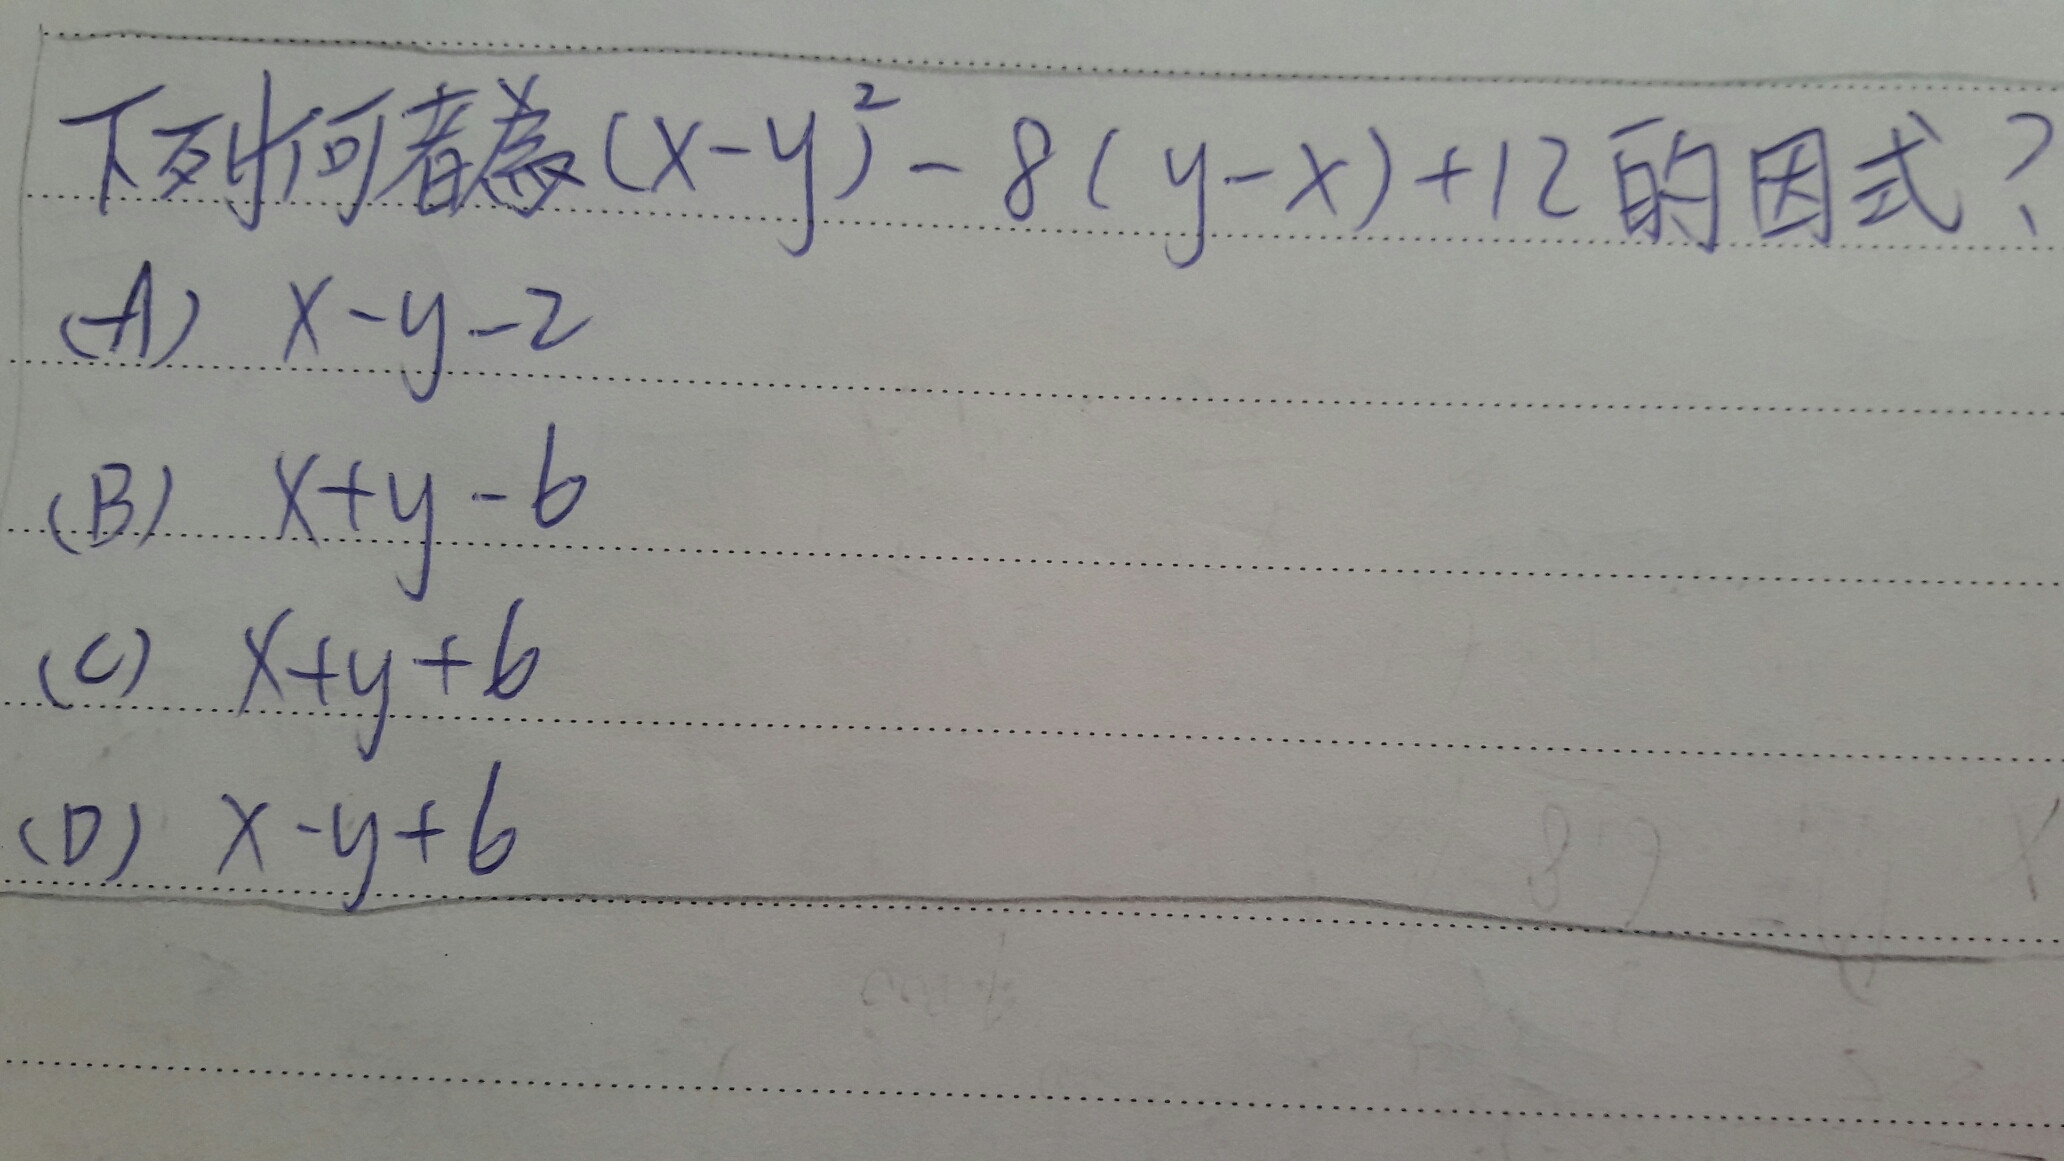 下列何者為(x-y)²-8(y-x)+12的因式?
(A) x-y-2
(B) x+y-6
(C) x+y+6
(D) x-y+6